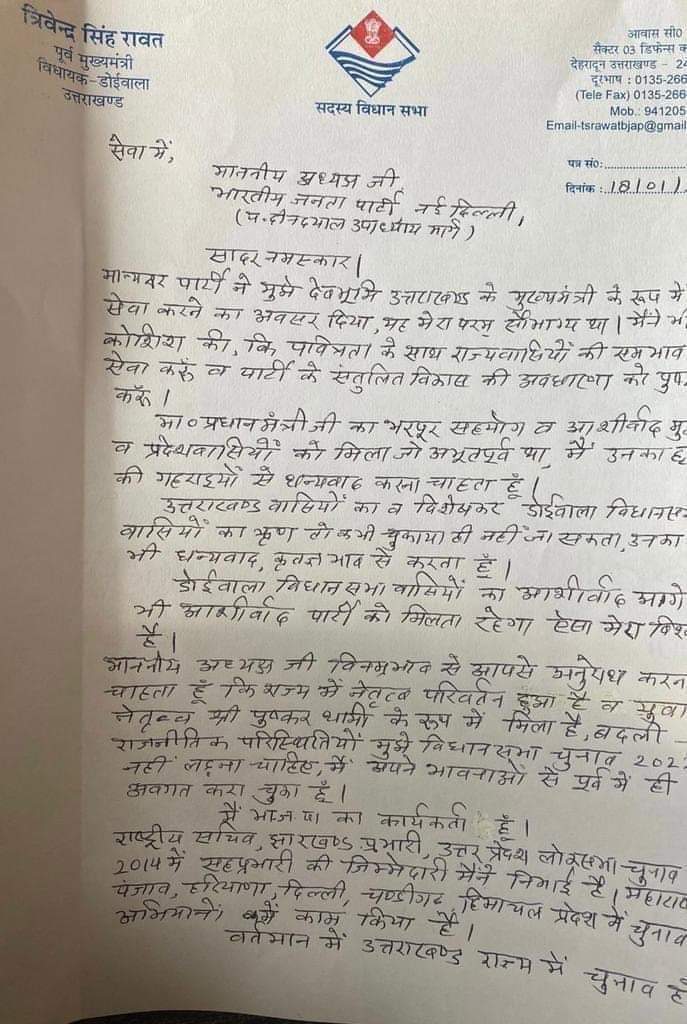 त्रिवेन्द्र सिंह रावत
पूर्व मुख्यमंत्री
विधायक-डोईवाला
उत्तराखण्ड
सदस्य विधान सभा
आवास सी०
सैक्टर 03 डिफेन्स
देहरादून उत्तराखण्ड - 24
दूरभाष : 0135-266
(Tele Fax) 0135-266
Mob.: 941205
Email-tsrawatbjap@gmail
पत्र सं०:
दिनांक : 18/01/
सेवा में,
माननीय अध्यक्ष जी
भारतीय जनता पार्टी नई दिल्ली,
(पं. दीनदयाल उपाध्याय मार्ग)
सादर नमस्कार।
मान्यवर पार्टी ने मुझे देवभूमि उत्तराखण्ड के मुख्यमंत्री के रूप में
सेवा करने का अवसर दिया, यह मेरा परम सौभाग्य था। मैंने भी
कोशिश की, कि पवित्रता के साथ राज्यवासियों की सम भाव
सेवा करूँ व पार्टी के संतुलित विकास की अवधारणा को पुष्
करूँ।
मा० प्रधानमंत्री जी का भरपूर सहयोग व आशीर्वाद मु
व प्रदेशवासियों को मिला जो अभूतपूर्व था, मैं उनका हृ
की गहराइयों से धन्यवाद करना चाहता हूँ।
उत्तराखण्ड वासियों का व विशेषकर डोईवाला विधानस
वासियों का ऋण तो कभी चुकाया ही नहीं जा सकता, उनका
भी धन्यवाद, कृतज्ञ भाव से करता हूँ।
डोईवाला विधानसभा वासियों का आशीर्वाद आगे
भी आशीर्वाद पार्टी को मिलता रहेगा ऐसा मेरा विश्
है।
माननीय अध्यक्ष जी विनम्रभाव से आपसे अनुरोध करन
चाहता हूँ कि राज्य में नेतृत्व परिवर्तन हुआ है व युवा
नेतृत्व श्री पुष्कर धामी के रूप में मिला है, बदली
राजनीतिक परिस्थितियों मुझे विधानसभा चुनाव 202
नहीं लड़ना चाहिए, मैं अपने भावनाओं से पूर्व में ही
अवगत करा चुका हूँ।
मैं भाजपा का कार्यकर्ता हूँ।
राष्ट्रीय सचिव, झारखण्ड प्रभारी, उत्तर प्रदेश लोकसभा चुनाव
2014 में सहप्रभारी की जिम्मेदारी मैंने निभाई है। महारा
पंजाव, हरियाणा, दिल्ली, चण्डीगढ़, हिमाचल प्रदेश में चुनाव
अभियानों में काम किया है।
वर्तमान में उत्तराखण्ड राज्य में चुनाव हो